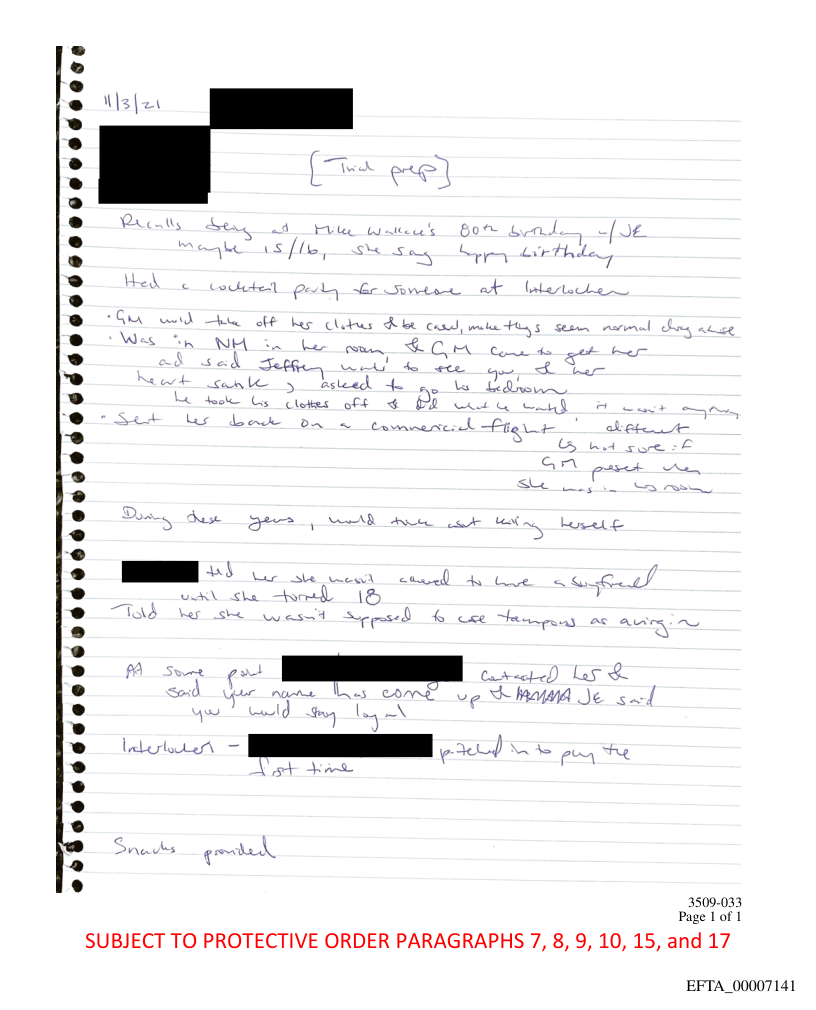 11/3/21
[Trial prep]
Recalls being at Mike Wallace's 80th birthday w/ JE
maybe 15/16, she sang happy birthday
Had a cocktail party for someone at Interlochen
· GM would take off her clothes & be casual, make things seem normal during abuse
· Was in NM in her room, & GM came to get her
and said Jeffrey wants to see you, & her
heart sank, asked to go his bedroom
he took his clothes off & did what he wanted, it wasn't anything
different
· Sent her back on a commercial flight
↳ not sure if
GM present when
she was in his room
During these years, would think about killing herself
told her she wasn't allowed to have a boyfriend
until she turned 18
Told her she wasn't supposed to use tampons as a virgin
At some point contacted her &
said your name has come up & JE said
you would stay loyal
Interlochen - pitched in to pay the
first time
Snacks provided
3509-033
Page 1 of 1
SUBJECT TO PROTECTIVE ORDER PARAGRAPHS 7, 8, 9, 10, 15, and 17
EFTA_00007141